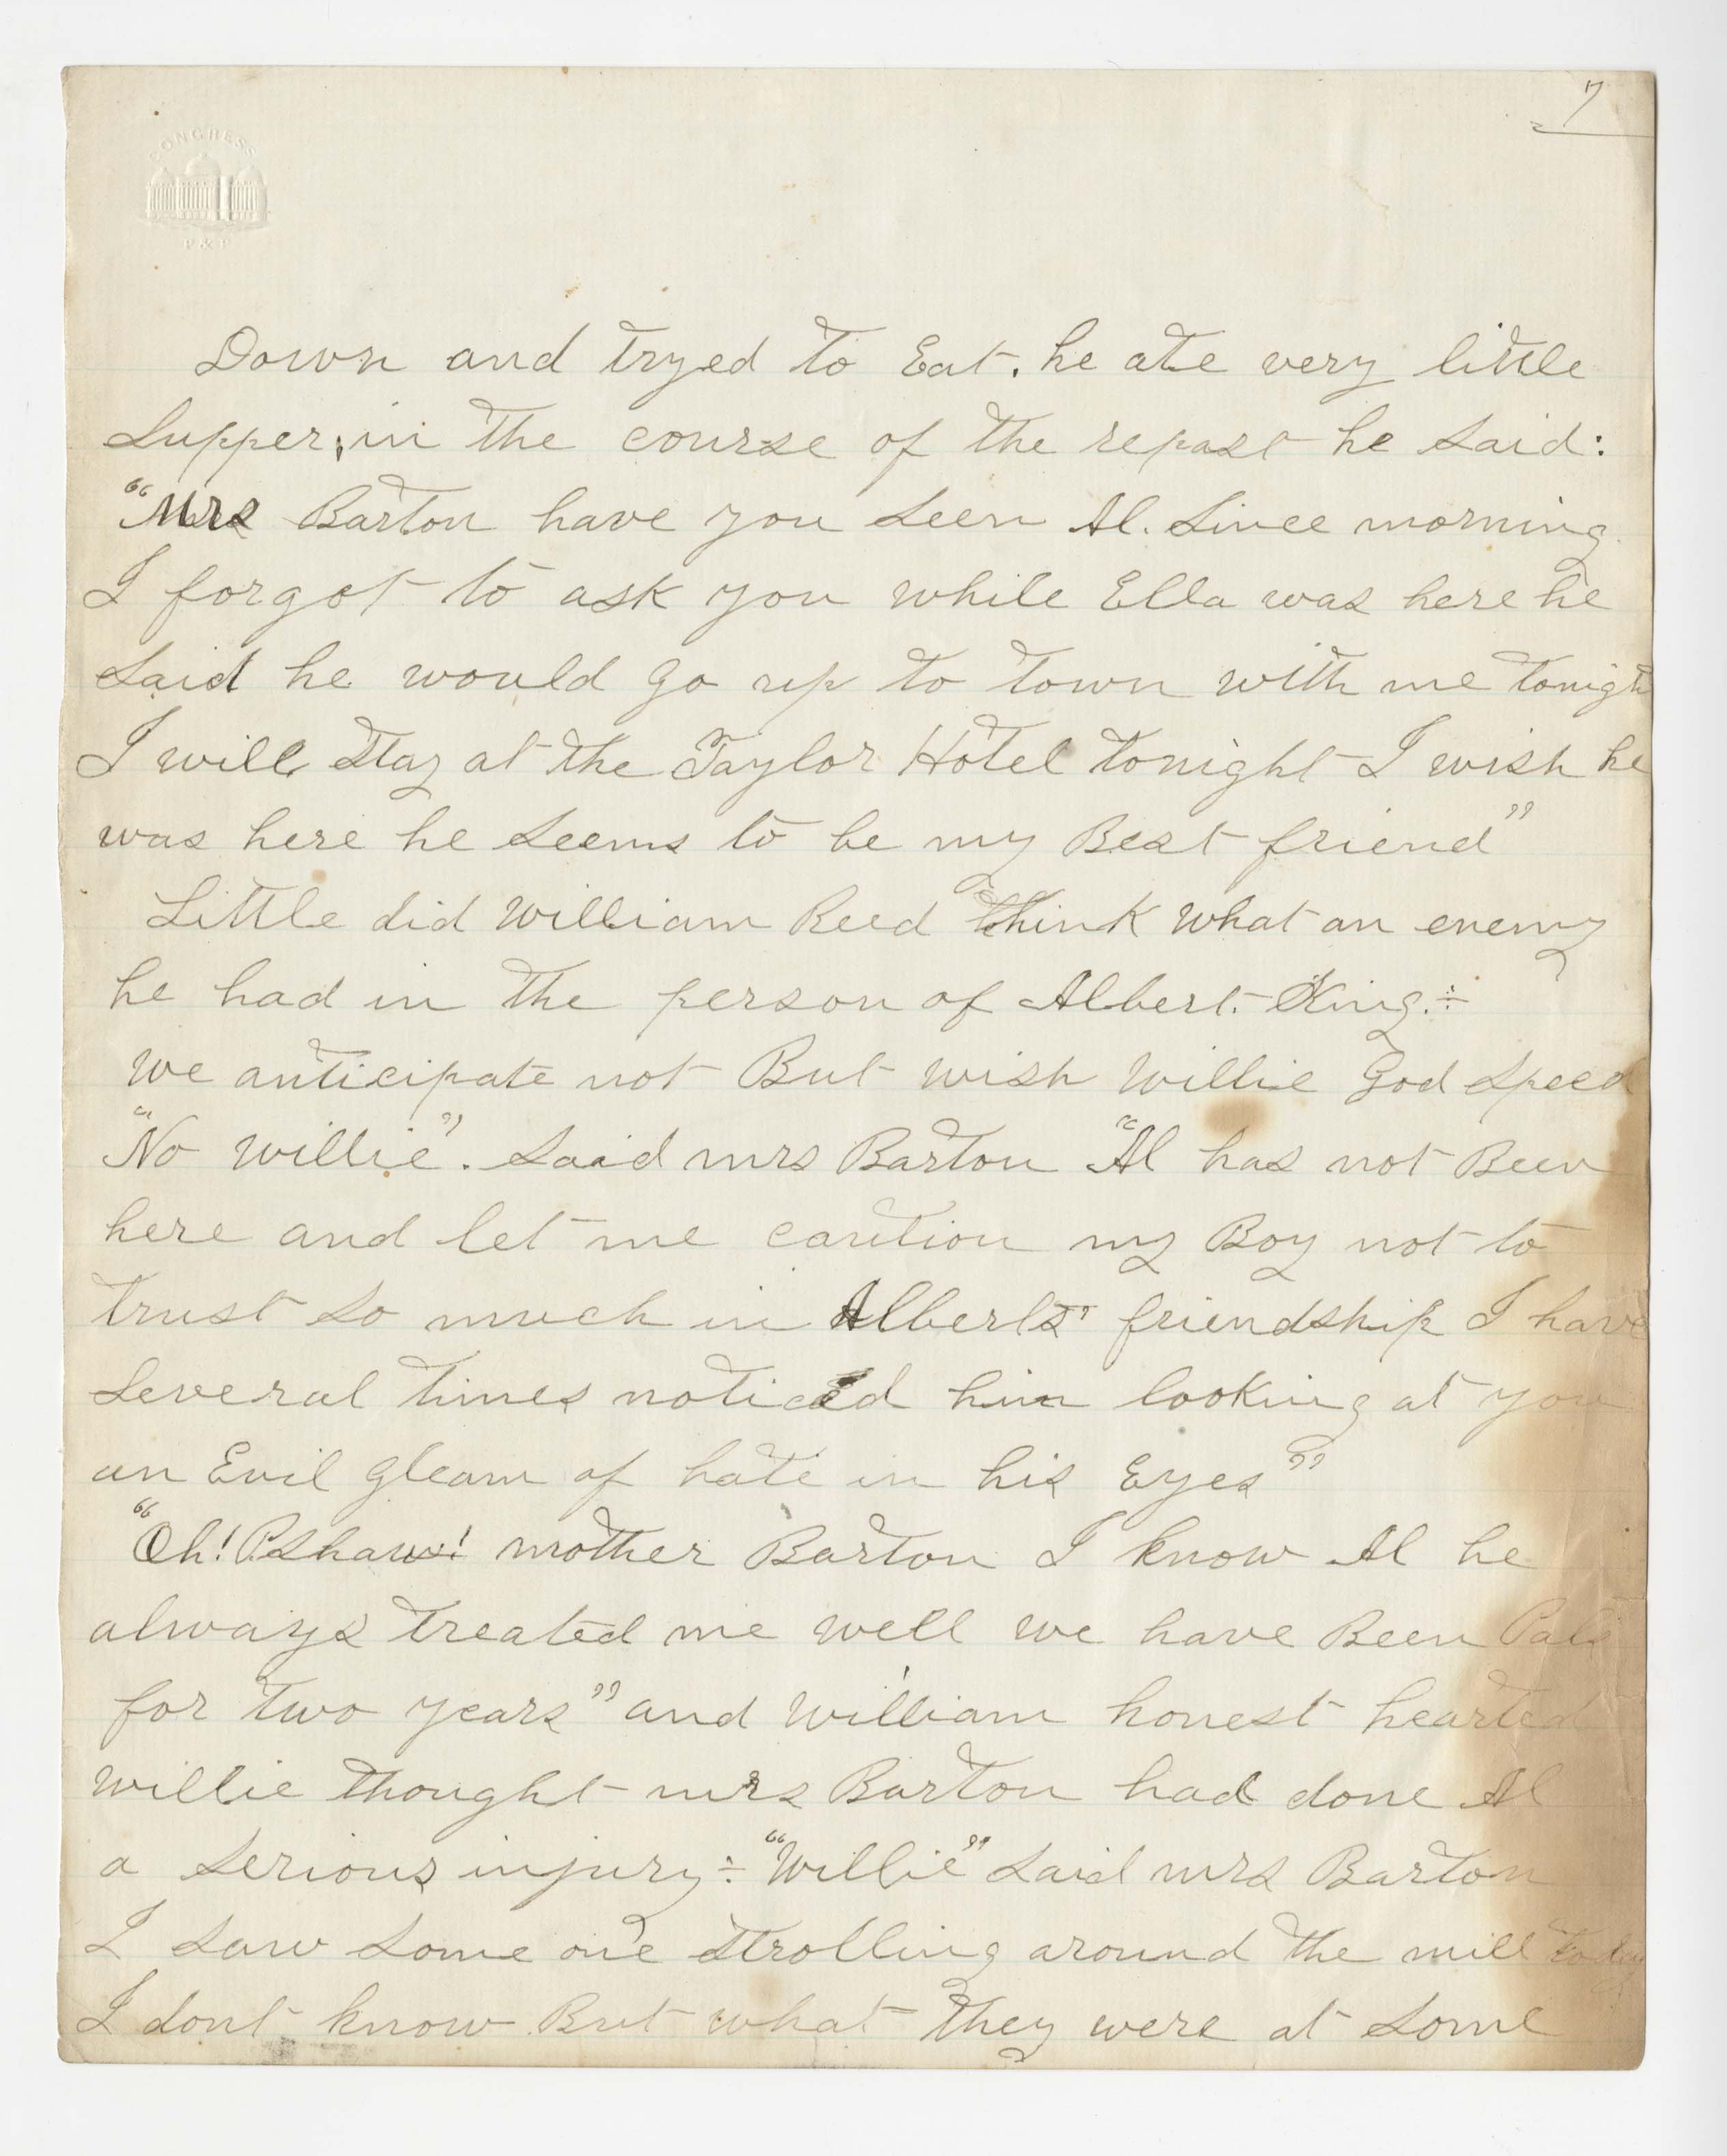 7
CONGRESS
P & P
Down and tryed to Eat. he ate very little
Supper, in the course of the repast he said:
"Mrs Barton have you seen Al. Since morning
I forgot to ask you while Ella was here he
said he would go up to town with me tonigt
I will stay at the Taylor Hotel tonight I wish he
was here he seems to be my Best friend"
Little did William Reed think what an enemy
he had in the person of Albert. King.÷
we anticipate not But wish Willie God speed
"No Willie". Said mrs Barton "Al has not Been
here and let me caution my Boy not to
trust so much in Alberts' friendship I have
several times noticed him looking at you
an Evil gleam of hate in his Eyes"
"Oh! Pshaw! mother Barton I know Al he
always treated me well we have Been Pals
for two years" and William honest hearted
willie thought mrs Barton had done Al
a serious injury÷ "Willie" said mrs Barton
I saw some one strolling around the mill today
I dont know But what they were at some